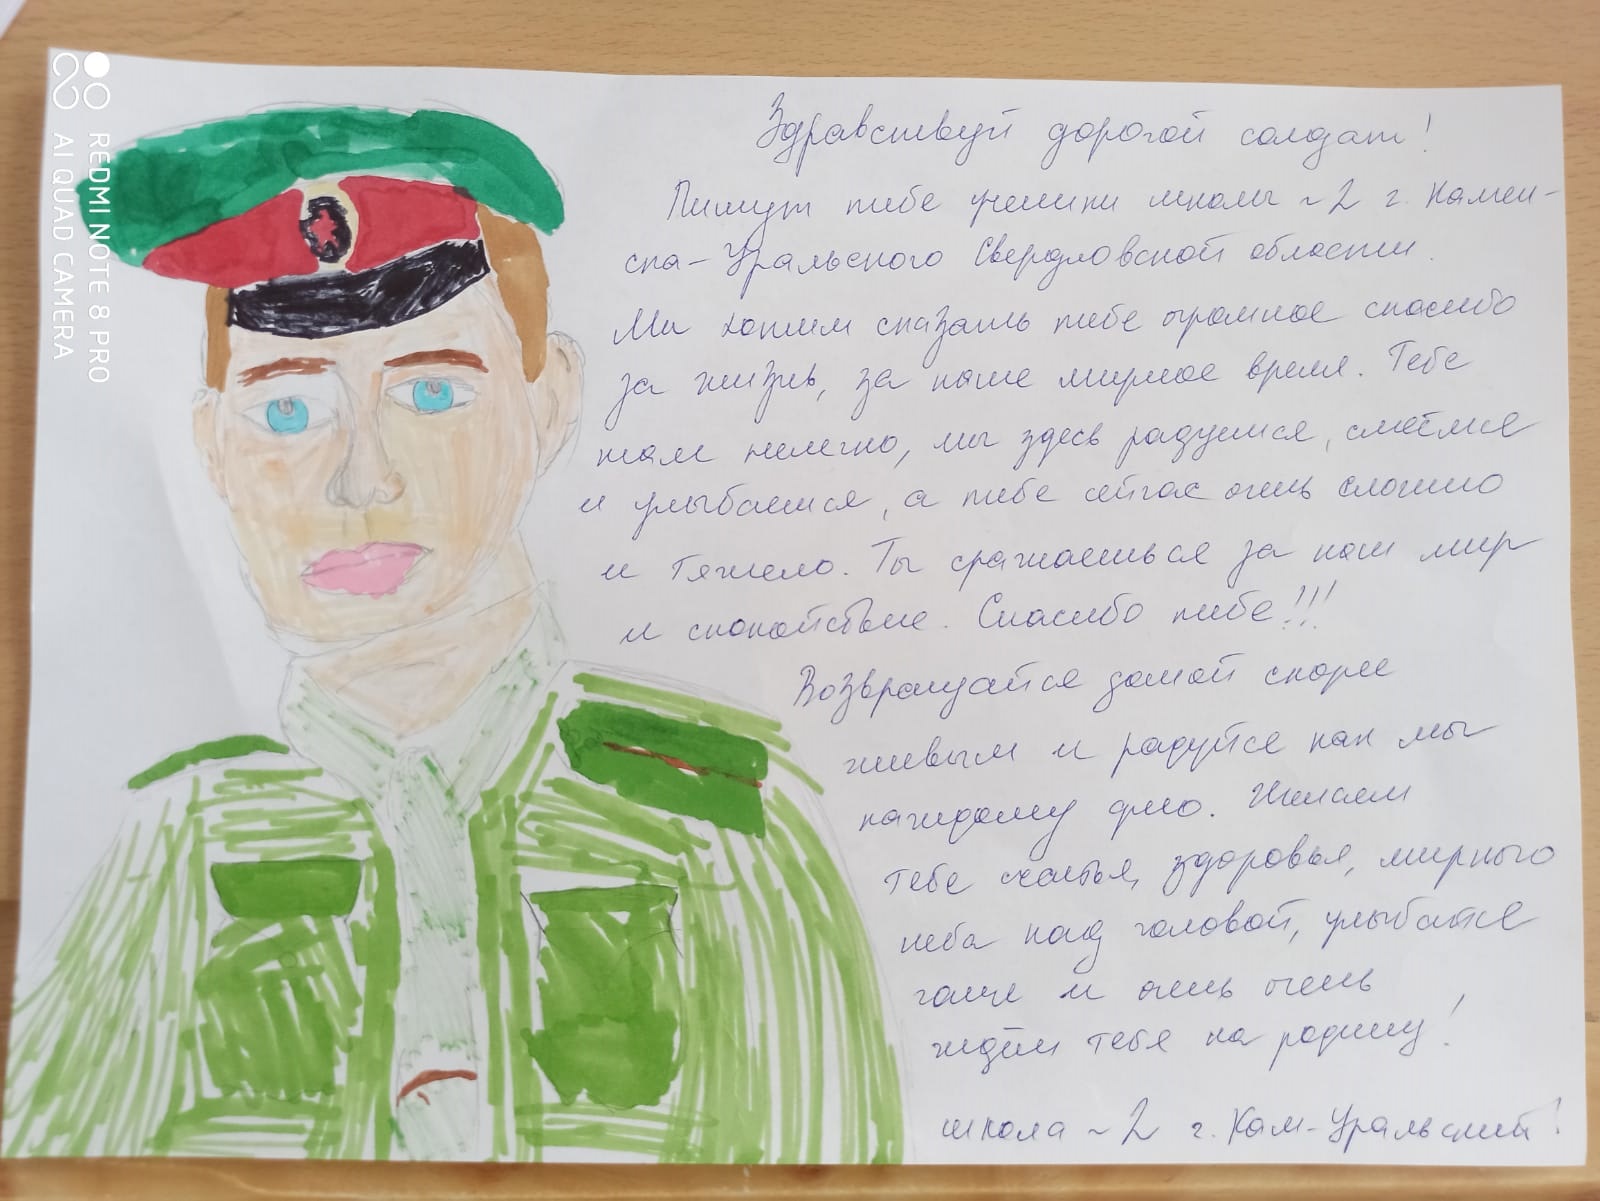 Здравствуй дорогой солдат!
Пишут тебе ученики школы ~2 г. Камен-
ска-Уральского Свердловской области.
Мы хотим сказать тебе огромное спасибо
за жизнь, за наше мирное время. Тебе
там нелегко, мы здесь радуемся, смеёмся
и улыбаемся, а тебе сейчас очень сложно
и тяжело. Ты сражаешься за наш мир
и спокойствие. Спасибо тебе!!!
Возвращайся домой скорее
живым и радуйся как мы
каждому дню. Желаем
тебе счастья, здоровья, мирного
неба над головой, улыбайся
чаще и очень очень
ждём тебя на родину!
школа ~2 г. Кам-Уральский!
REDMI NOTE 8 PRO
AI QUAD CAMERA